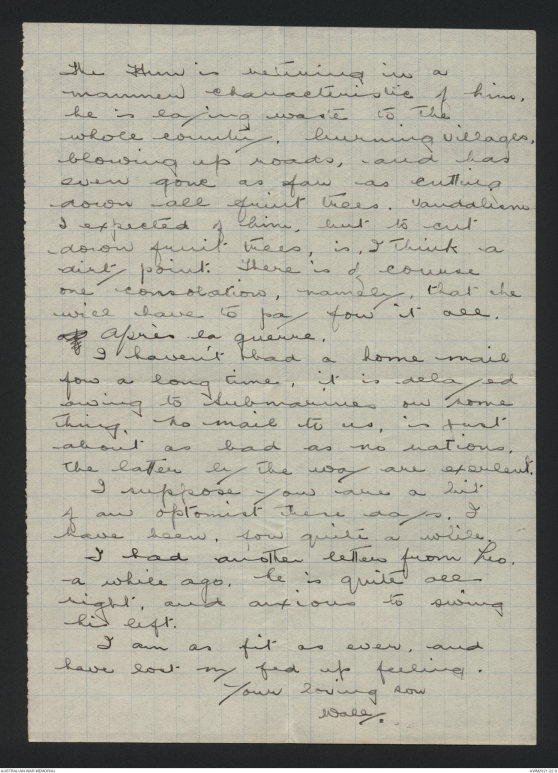 The Hun is retiring in a
manner characteristic of him,
he is laying waste to the
whole country, burning villages,
blowing up roads, and has
even gone as far as cutting
down all fruit trees. Vandalism
I expected of him, but to cut
down fruit trees, is, I think a
dirty point. There is of course
one consolation, namely, that he
will have to pay for it all.
Après la guerre.
I haven't had a home mail
for a long time, it is delayed
owing to Submarines or some
thing. No mail to us, is just
about as bad as no rations,
the latter by the way are excellent.
I suppose you are a bit
of an optomist these days. I
have been, for quite a while.
I had another letter from Leo,
a while ago, he is quite all
right, and anxious to swing
his left.
I am as fit as ever, and
have lost my fed up feeling.
Your loving son
Wally.
AUSTRALIAN WAR MEMORIAL